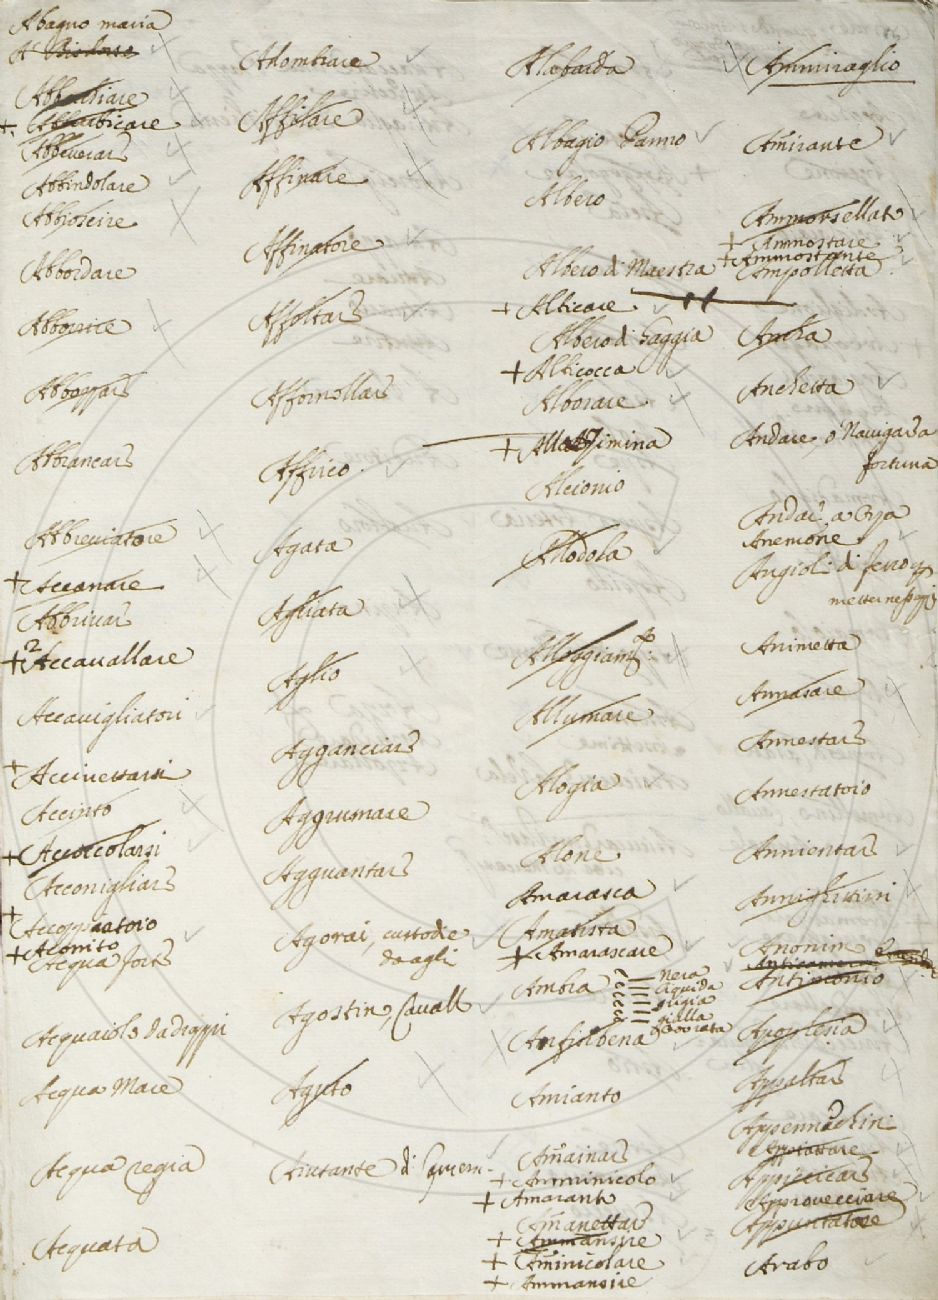 Abagno maria
A Bisdosso
Abbachiare
+ Abbarbicare
Abbeverare
Abbindolare
Abbioscire
Abbordare
Abborrice
Abbozzare
Abbrancare
Abbreviatore
+ Accanare
Abbrivare
+ 2 Accavallare
Accavigliatori
+ Accivettarsi
Accinto
+ Accoccolarsi
Acconigliare
+ Accoppiatoio
+ Aconito
Acqua forte
Acquaiolo da
Acqua Mare
Acqua regia
Acquata
Adombrare
Affilare
Affinare
Affinatore
Affoltare
Affornellare
Affrico
Agata
Agliata
Aglio
Agganciare
Aggrumare
Agguantare
Agorai, custodie
da agli
Agostin, Cavall
Aguto
Aiutante di
Alabarda
Albagio Panno
Albero
Albero di Maestra
+ Albicare
Albero di Gaggia
+ Albicocca
Alborare
+ Allazzimina
Alcionio
Allodola
Alloggiam.to
Allumare
Alogia
Alone
Amarasca
Amatista
+ Amarascare
Ambra
nera
liquida
grigia
gialla
odorata
Anfisbena
Amianto
Amainare
+ Amminicolo
+ Amaranto
Amanettare
+ Ammansire
+ Aminicolare
+ Ammansire
Ammiraglio
Amirante
Ammorsellato
+ Ammostare
+ Ammostante
Ampolletta
Ancha
Anchetta
Andare, o Navigar a
fortuna
Andar a Orza
Anemone
Angioli di ferro p
metter
Animetta
Annasare
Annestare
Annestatoio
Annientare
Annighittiri
Anonim
Antimonio
Apoplesia
Appaltare
Appennechin
Appiattare
Appiccicare
Approvecciare
Appuntatore
Arabo